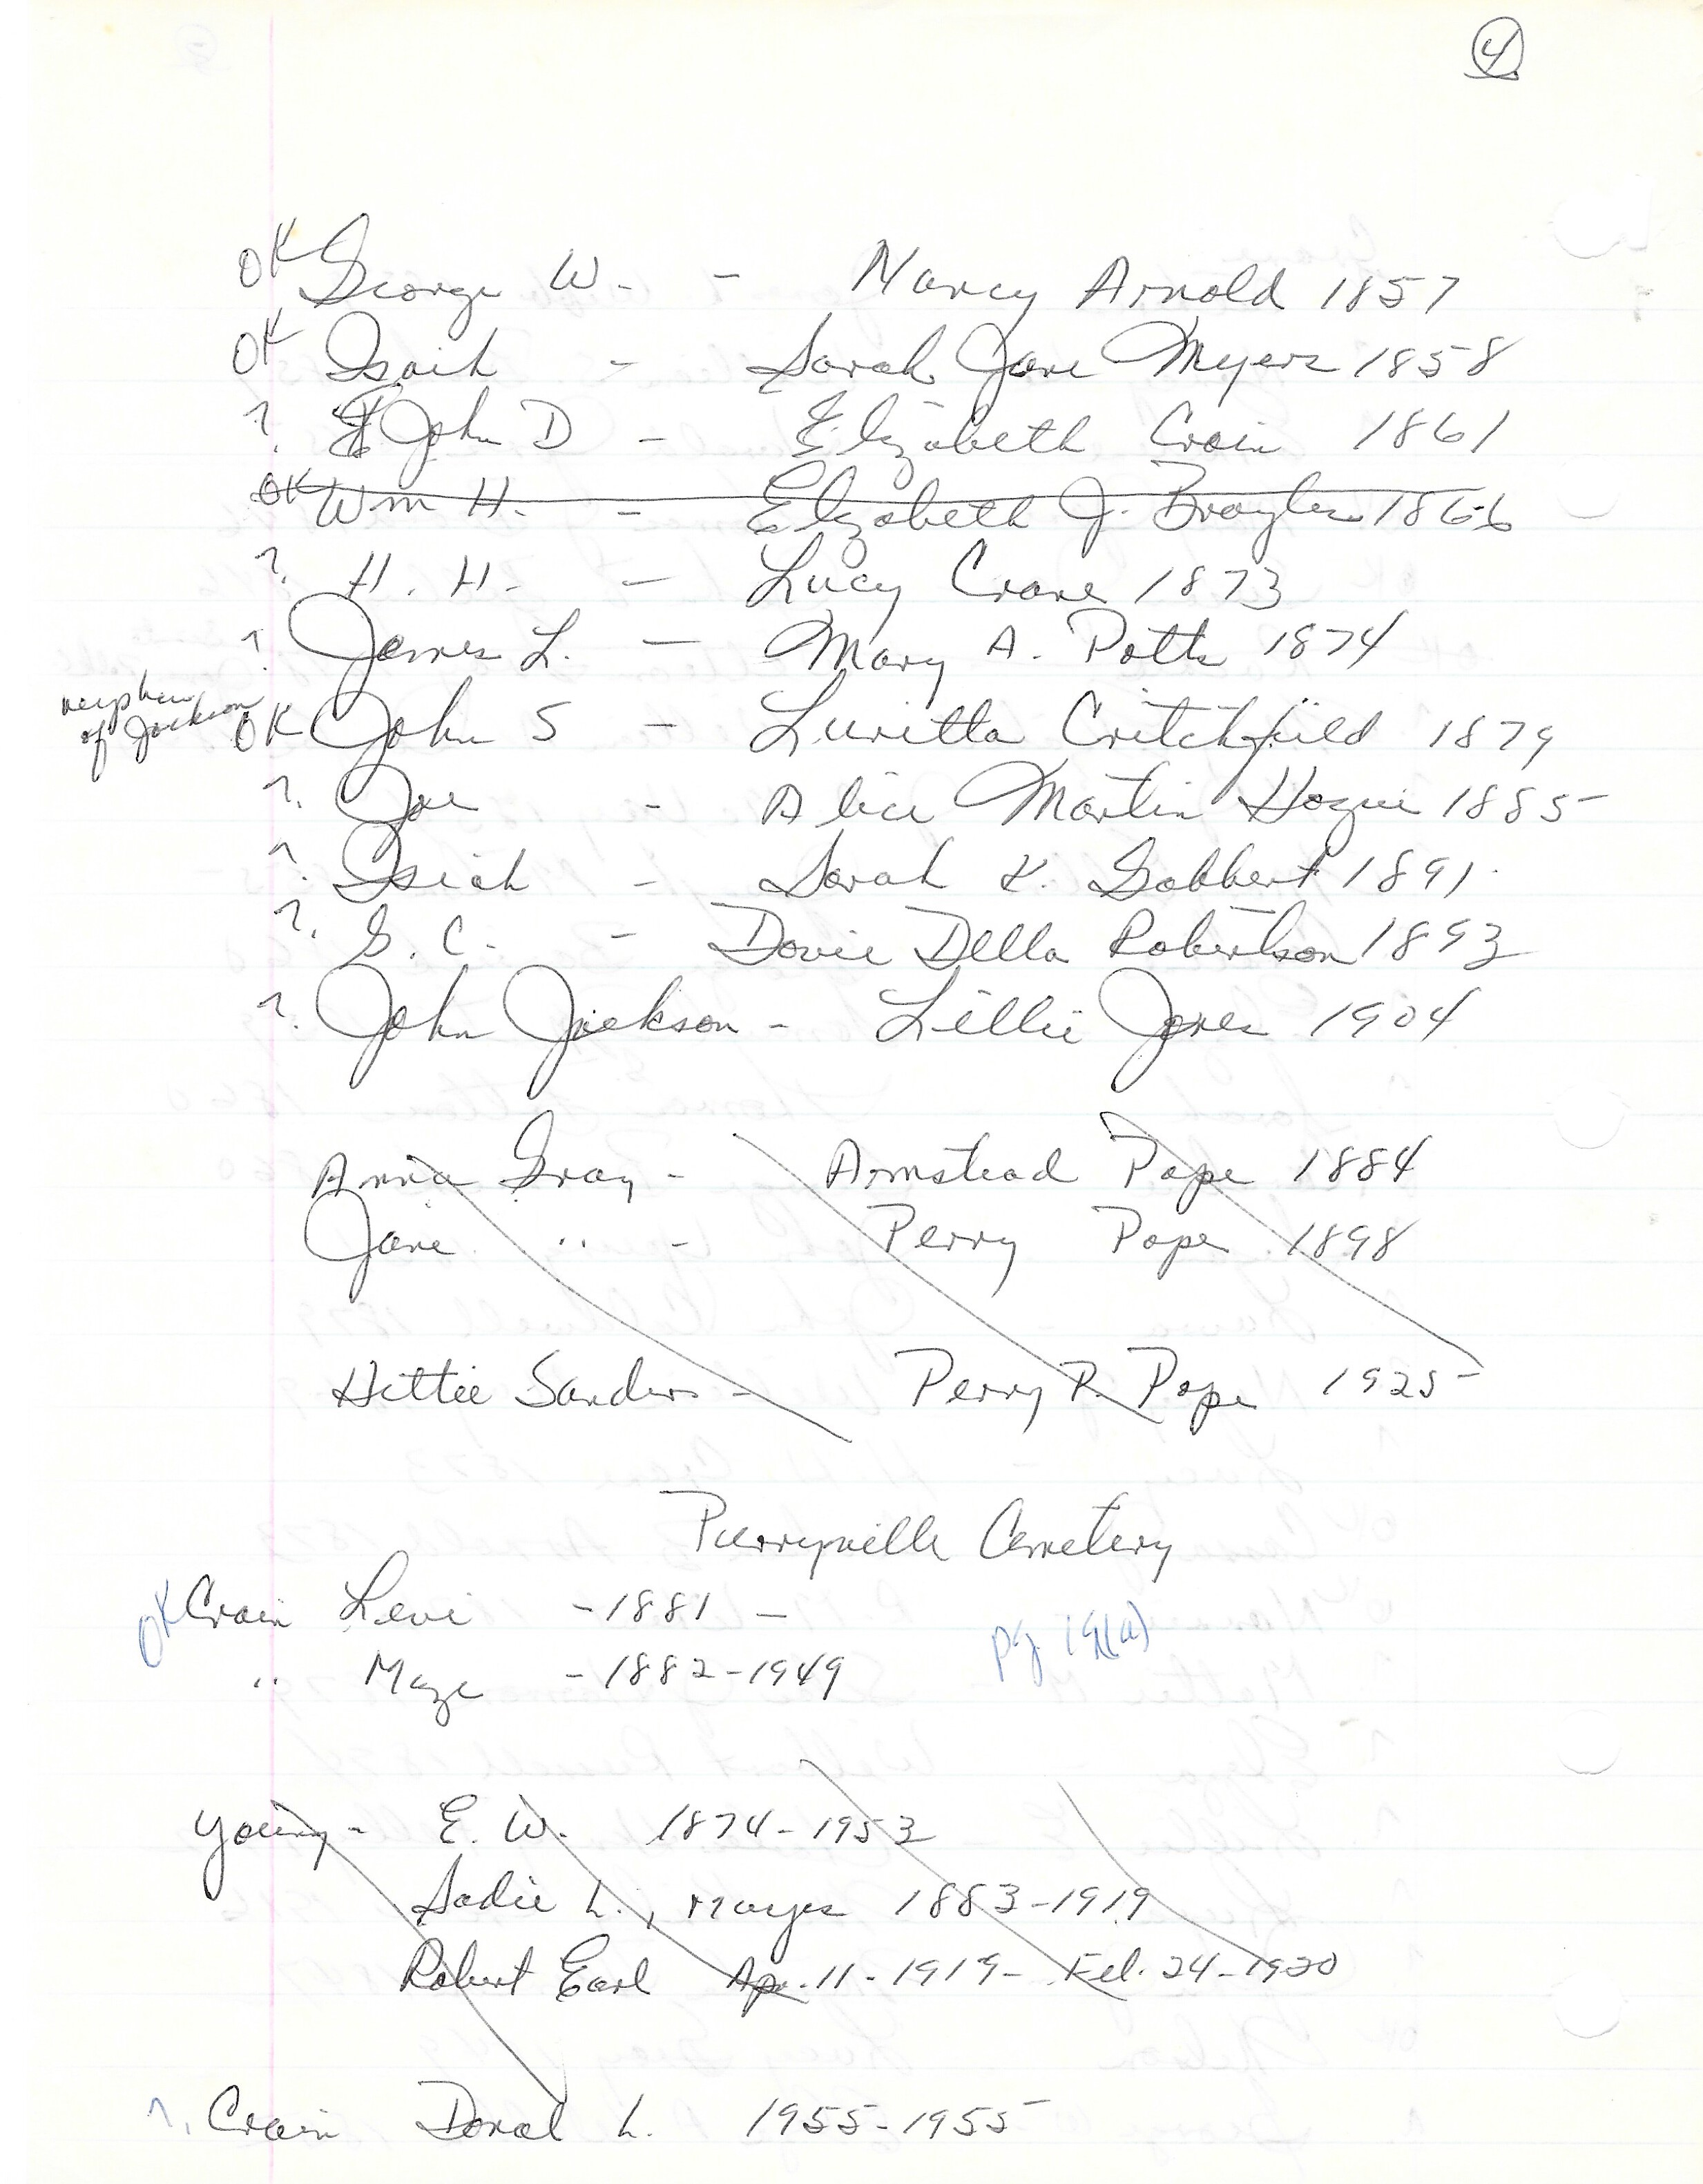 4.
OK George W. - Nancy Arnold 1857
OK Isaih - Sarah Jane Myers 1858
? John D - Elizabeth Crain 1861
OK Wm H. - Elizabeth J. Brayles 1866
? H. H. - Lucy Crane 1873
? James L. - Mary A. Potts 1874
nephew
of Jackson
OK John S - Luritta Critchfield 1879
? Joe - Alice Martin Hogue 1885
? Isiah - Sarah K. Gabbert 1891
? G. C. - Dovie Della Robertson 1893
? John Jackson - Lillie Jones 1904
Anna Gray - Armstead Pope 1884
Jane " - Perry Pope 1898
Hettie Sanders - Perry P. Pope 1925
Perryville Cemetery
OK Crain Levi - 1881 -
" Maze - 1882-1949
pg. 19(a)
Young - E. W. 1874-1953
Sadie L., Mayes 1883-1919
Robert Earl Ap. 11-1919- Feb. 24-1920
? Crain Donal L. 1955-1955